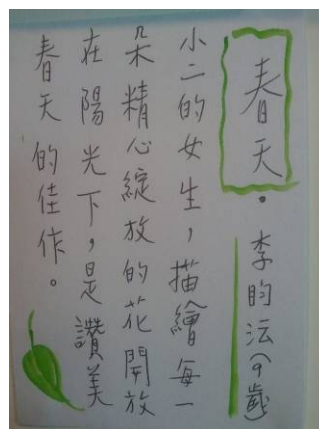 春天・李昀沄(9歲)
小二的女生，描繪每一
朵精心綻放的花開放
在陽光下，是讚美
春天的佳作。